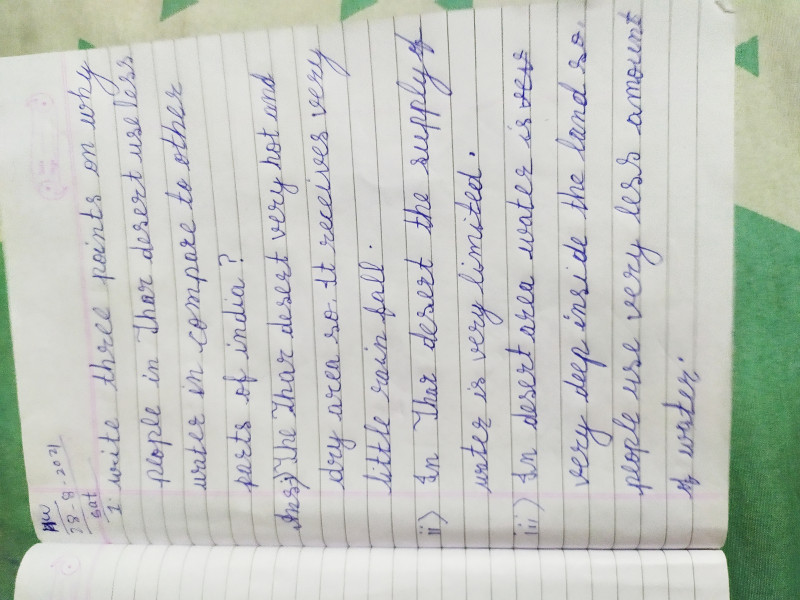 HW
28-8-2021
Sat
1. write three points on why
people in Thar desert use less
water in compare to other
parts of india?
Ans i) The Thar desert very hot and
dry area so. It receives very
little rain fall.
ii) In Thar desert the supply of
water is very limited.
iii) In desert area water is
very deep inside the land so.
people use very less amount
of water.